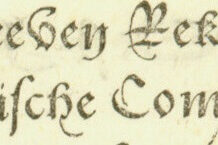 eeven Rek
ische Com